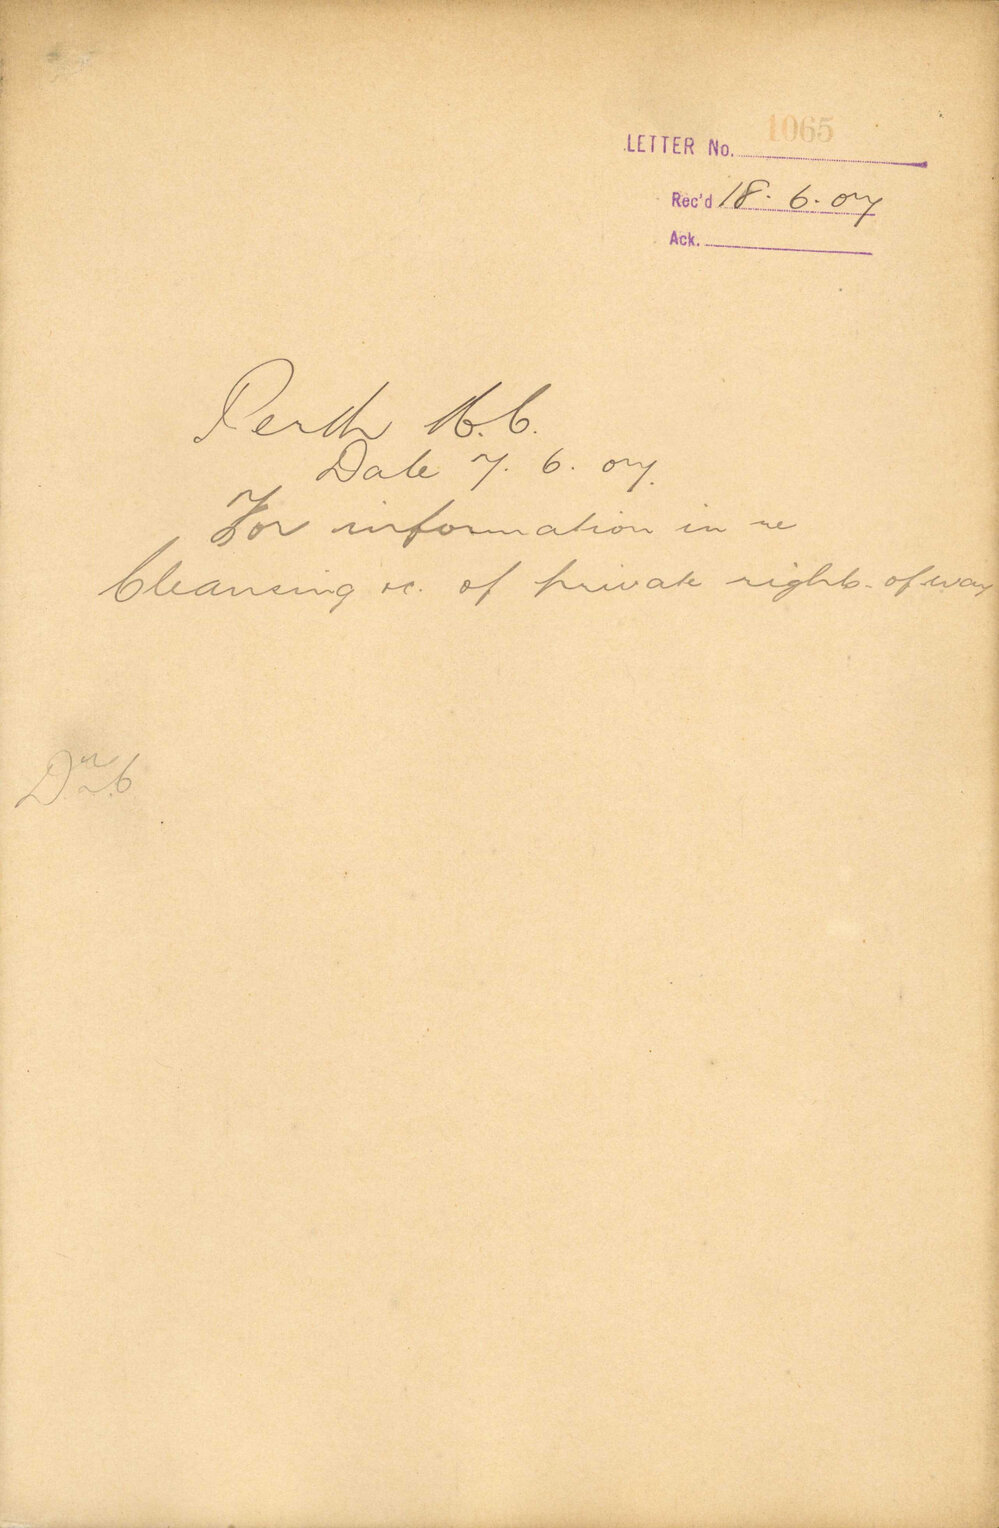 LETTER No. 1065
Rec'd 18. 6. 07
Ack.
Perth M.C.
Date 7. 6. 07.
For information in re
Cleansing &c. of private rights-of-way